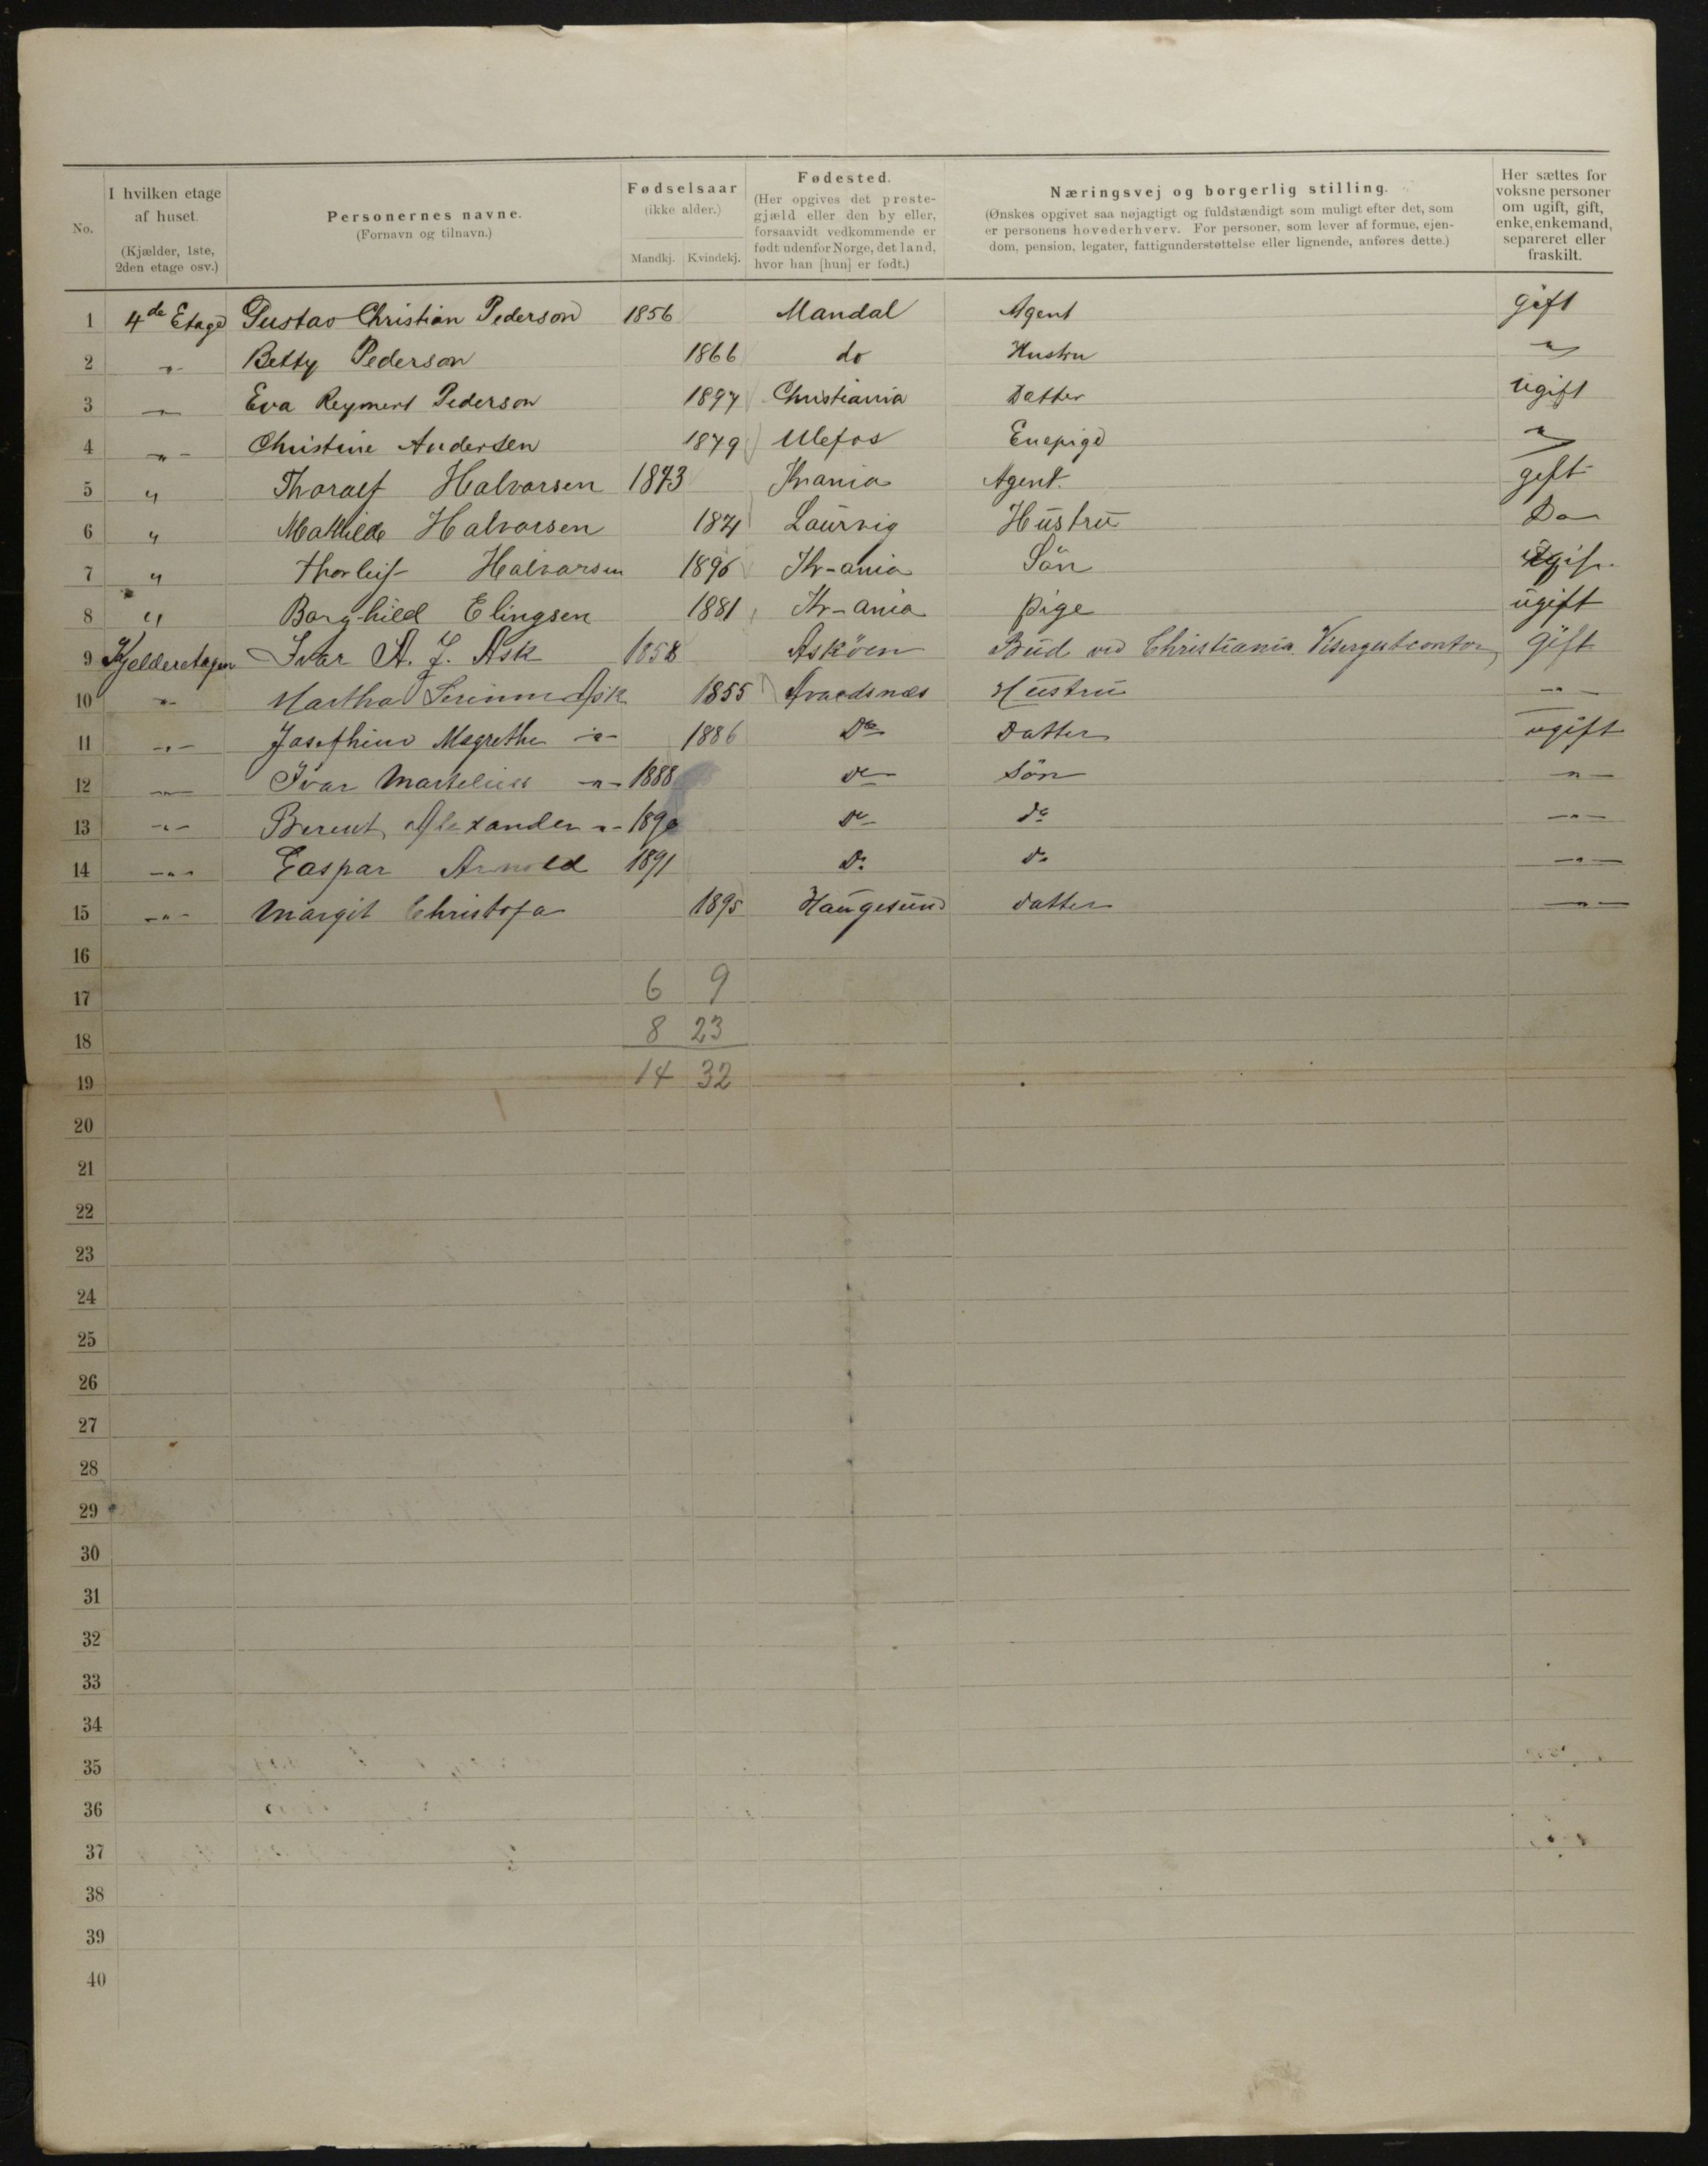 No.
I hvilken etage af huset. (Kjælder, 1ste, 2den etage osv.)
Personernes navne. (Fornavn og tilnavn.)
Fødselsaar (ikke alder.) Mandkj. Kvindekj.
Fødested. (Her opgives det prestegjæld eller den by eller, forsaavidt vedkommende er født udenfor Norge, det land, hvor han [hun] er født.)
Næringsvej og borgerlig stilling. (Ønskes opgivet saa nøjagtigt og fuldstændigt som muligt efter det, som er personens hovederhverv. For personer, som lever af formue, ejendom, pension, legater, fattigunderstøttelse eller lignende, anføres dette.)
Her sættes for voksne personer om ugift, gift, enke, enkemand, separeret eller fraskilt.
1 4de Etage Gustav Christian Pederson 1856 Mandal Agent gift
2 " Betty Pederson 1866 do Hustru "
3 " Eva Reymert Pederson 1897 Christiania Datter ugift
4 " Christine Andersen 1879 Ulefos Enepige "
5 " Thoralf Halvorsen 1873 Krania Agent. gift
6 " Mathilde Halvorsen 1871 Laurvig Hustru Do
7 " Thorleif Halvorsen 1896 Kr-ania Sön ugift
8 " Borghild Elingsen 1881 Kr-ania pige ugift
9 Kjelderetagen Ivar A. J. Ask 1858 Asköen Bud ved Christiania Visergutcontor gift
10 " Martha Serinne Ask 1855 Avaldsnæs Hustru "
11 " Josefhine Magrethe " 1886 Do Datter ugift
12 " Ivar Martelius " 1888 Do Sön "
13 " Berent Alexander " 1890 Do do "
14 " Caspar Arnold 1891 Do do "
15 " Margit Christofa 1895 Haugesund datter "
16
17 6 9
18 8 23
19 14 32
20
21
22
23
24
25
26
27
28
29
30
31
32
33
34
35
36
37
38
39
40